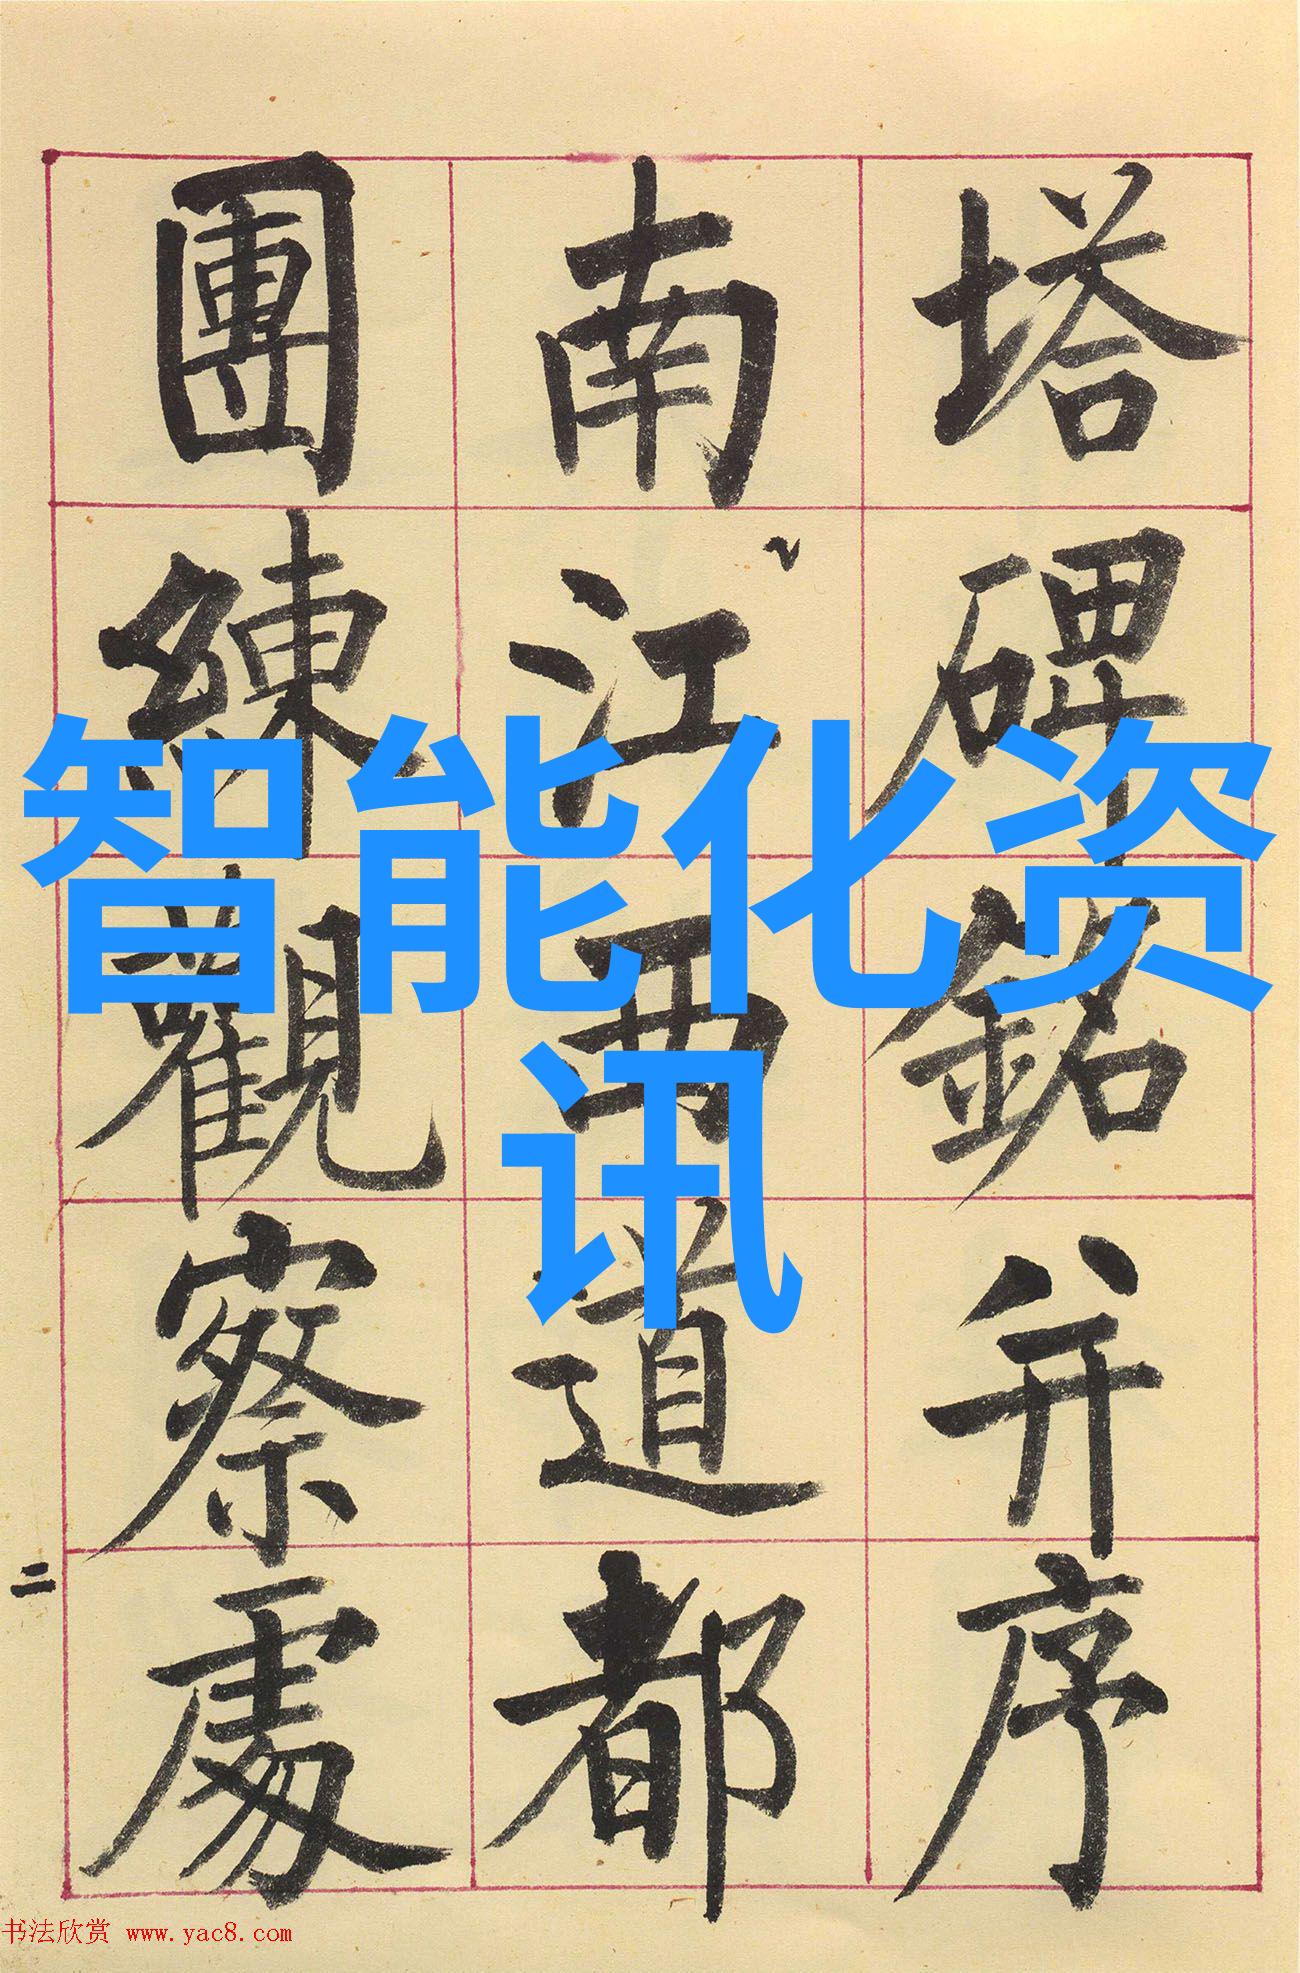 塔碑銘并序
南江西道都
團練觀察處
智能化资
讯
二
书法欣赏 www.yac8.com